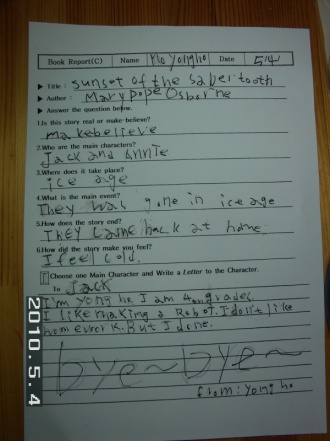 Book Report(C) Name Ho Yongho Date 5/4
▶ Title : sunset of the sabertooth
▶ Author : Mary pope Osborne
▶ Answer the question below.
1.Is this story real or make-believe?
makebelieve
2.Who are the main characters?
Jack and Annie
3.Where does it take place?
ice age
4.What is the main event?
They was gone in ice age
5.How does the story end?
They came back at home.
6.How did the story make you feel?
I feel cold.
Choose one Main Character and Write a Letter to the Character.
To Jack
I'm yong ho I am 4 grades.
I like making a Robot. I don't like
homework. But I done.
bye~bye~
from: yong ho
2010. 5. 4